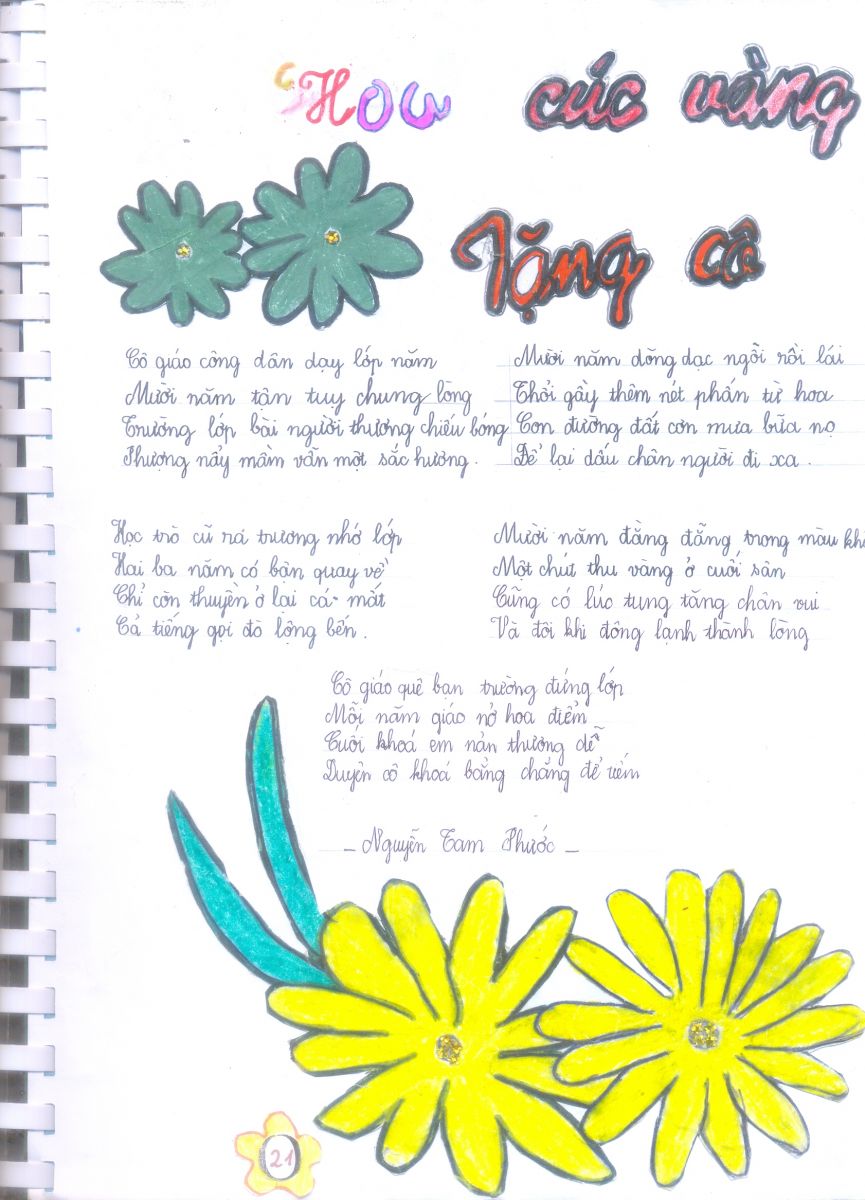 Hoa cúc vàng
Tặng cô
Cô giáo công dân dạy lớp năm
Mười năm tận tụy chung lòng
Trường lớp bài người thương chiếu bóng
Phượng nẩy mầm vẫn một sắc hương.
Mười năm dõng dạc ngồi rồi lái
Thổi gầy thêm nét phấn từ hoa
Con đường đất cơn mưa bữa nọ
Để lại dấu chân người đi xa.
Học trò cũ rá trương nhớ lớp
Hai ba năm có bận quay về
Chỉ còn thuyền ở lại cá mắt
Cả tiếng gọi đò lộng bến.
Mười năm đằng đẵng trong màu khi
Một chút thu vàng ở cuối sân
Cũng có lúc tung tăng chân vui
Và đôi khi đông lạnh thành lòng
Cô giáo quê bạn trường đứng lớp
Mỗi năm giáo nở hoa điểm
Cuối khoá em nản thương dễ
Duyên cô khoá bảng chẳng để
- Nguyễn Tam Phước -
21